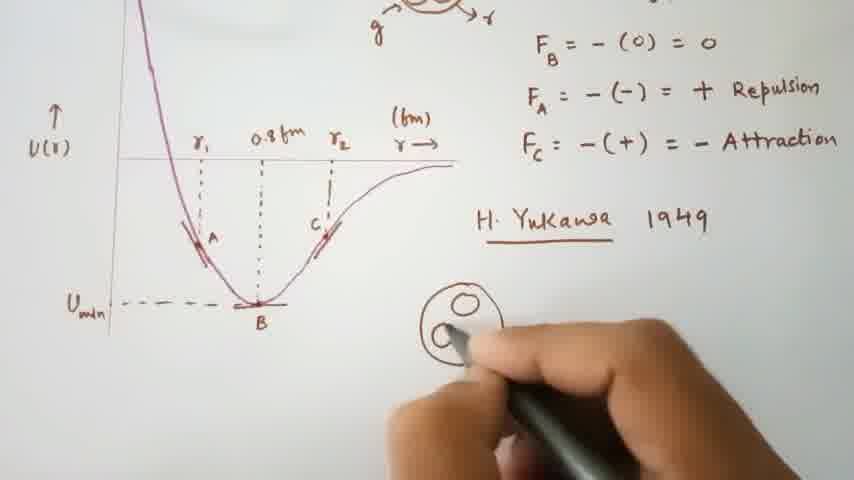 g r
F_B = - (0) = 0
F_A = - (-) = + Repulsion
F_C = - (+) = - Attraction
H. Yukawa 1949
(fm)
r₁ 0.8 fm r₂ r →
↑
U(r)
A C
U_min
B